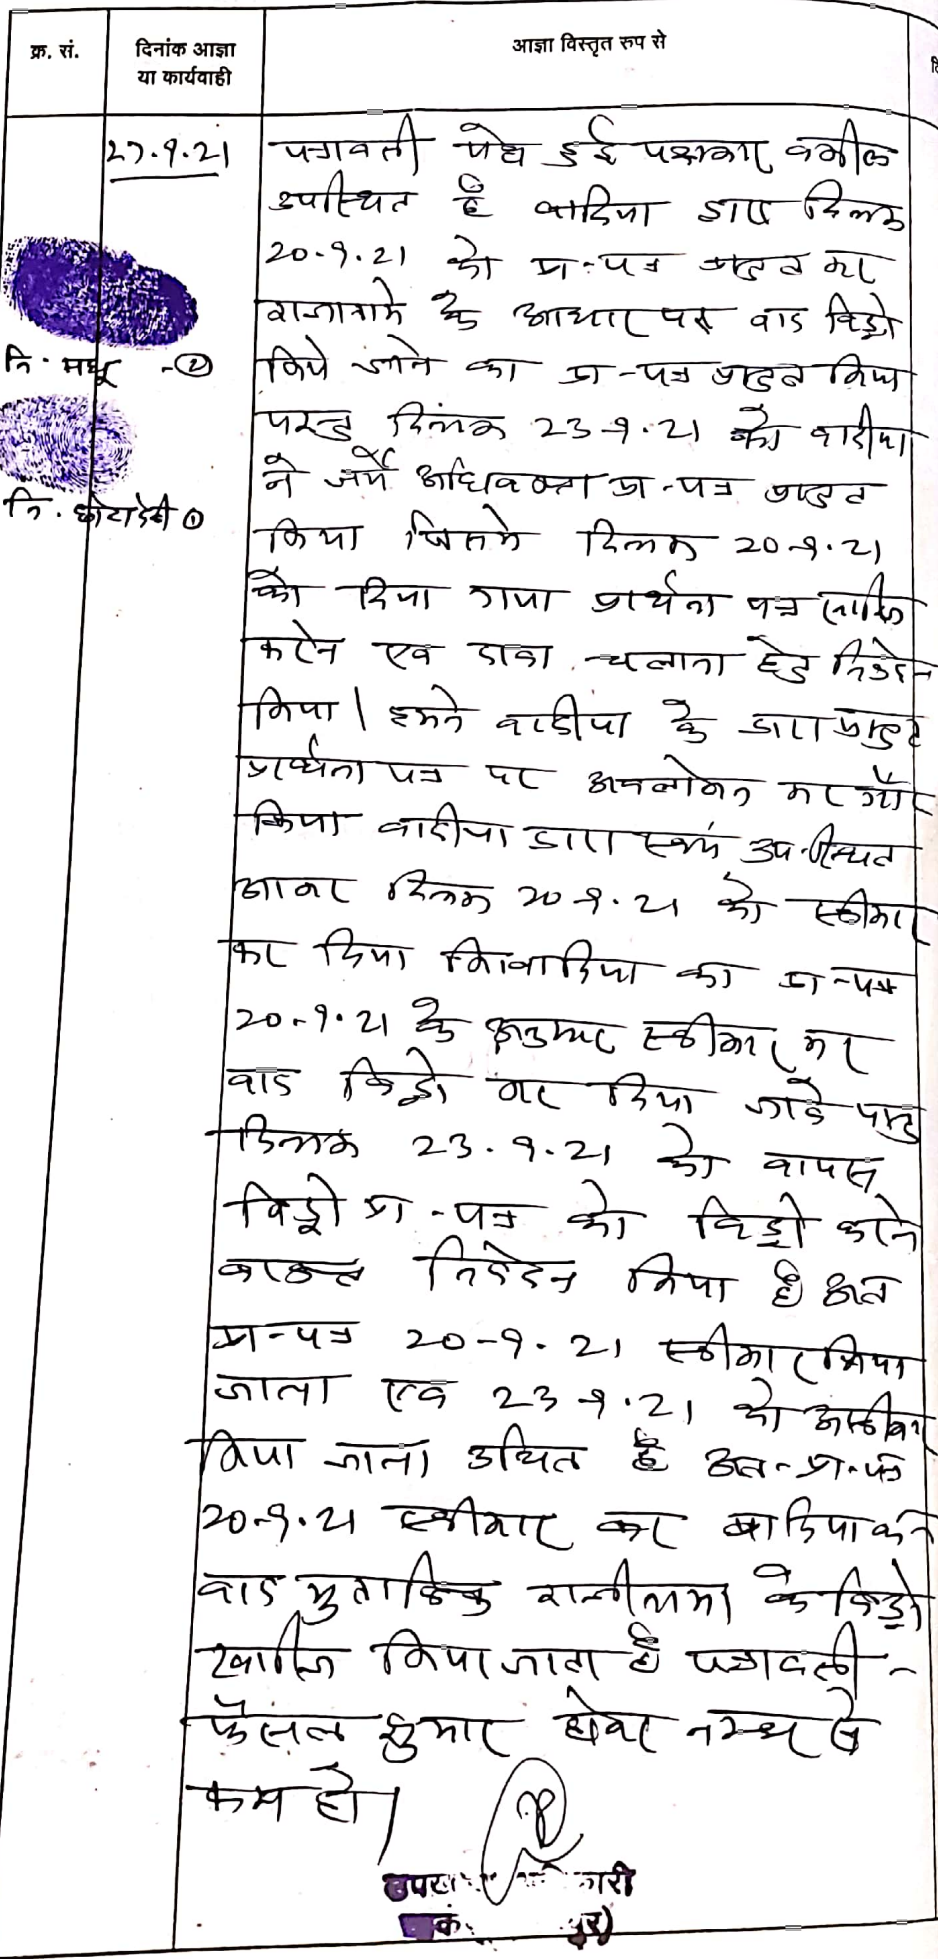 क्र. सं.
दिनांक आज्ञा
या कार्यवाही
आज्ञा विस्तृत रुप से
27.9.21
पत्रावली पेश हुई पक्षकार वकील
उपस्थित है वादिया द्वारा दिनांक
20.9.21 को प्रा.पत्र प्रस्तुत कर
राजीनामे के आधार पर वाद विड्रो
किये जाने का प्रा-पत्र प्रस्तुत किया
परन्तु दिनांक 23-9.21 को वादीया
ने जर्ये अधिवक्ता प्रा-पत्र प्रस्तुत
किया जिसमे दिनांक 20-9.21
को दिया गया प्रार्थना पत्र खारिज
करने एव दावा चलाना हेतु निवेदन
किया। हमने वादीया के द्वारा प्रस्तुत
प्रार्थना पत्र पर अवलोकन कर गौर
किया वादीया द्वारा स्वयं उपस्थित
आकर दिनांक 20.9.21 को स्वीकार
कर दिया कि वादिया का प्रा-पत्र
20.9.21 के अनुसार स्वीकार कर
वाद विड्रो कर दिया जावे परन्तु
दिनांक 23.9.21 को वापस
विड्रो प्रा-पत्र को विड्रो करने
निवेदन किया है अत
प्रा-पत्र 20-9.21 स्वीकार किया
जाना एव 23-9.21 को अस्वीकार
किया जाना उचित है अत-प्रा.पत्र
20.9.21 स्वीकार कर वादिया का
वाद मुताबिक राजीनामा के विड्रो
खारिज किया जाता है पत्रावली -
फैसल शुमार होकर नम्बर से
कम हो।
नि. मधु -②
नि. छोटा देवी ①